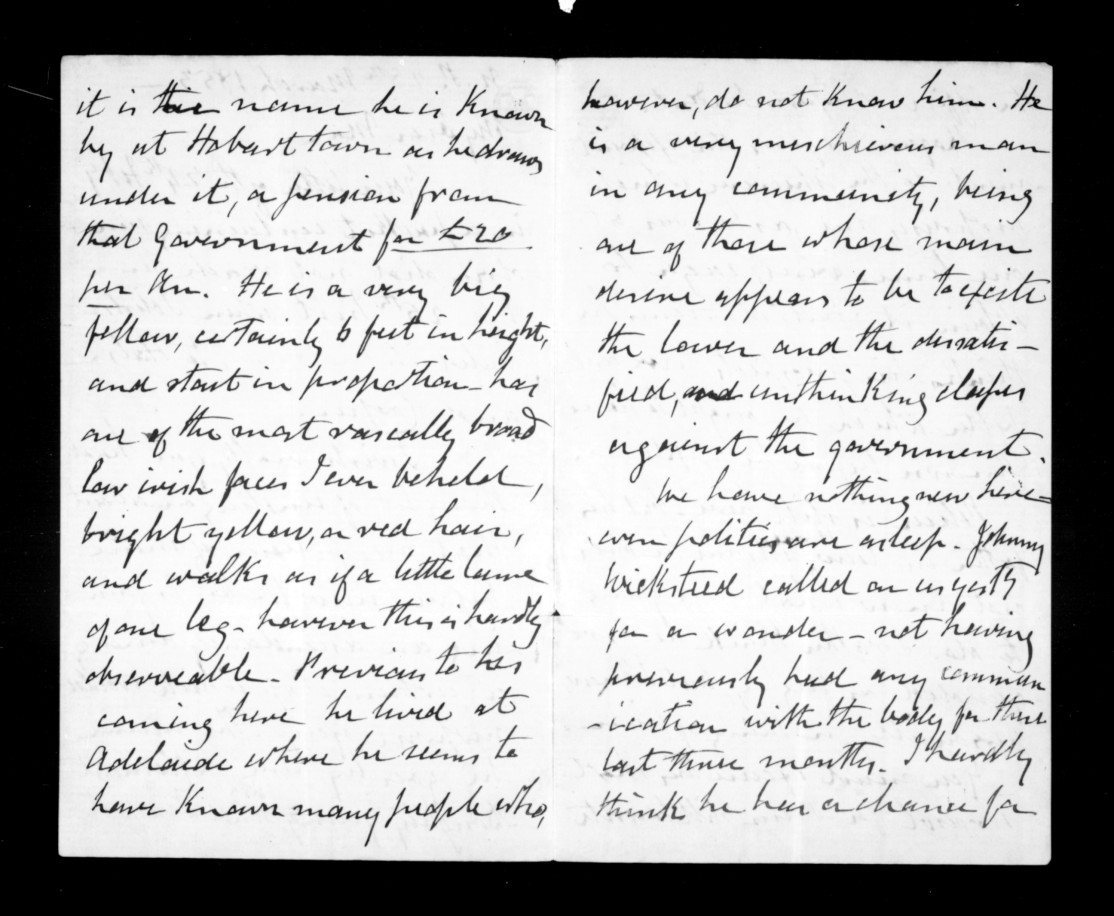 it is the name he is Known
by at Hobart town as he draws
under it, a pension from
that Government for £20
per An. He is a very big
fellow, certainly 6 feet in height,
and stout in proportion - has
one of the most rascally broad
low irish faces I ever beheld,
bright yellow, or red hair,
and walks as if a little lame
of one leg - however this is hardly
observeable. Previous to his
coming here he lived at
Adelaide where he seems to
have Known many people who,
however, do not Know him. He
is a very mischievous man
in any community, being
one of those whose main
desire appears to be to excite
the lower and the dissatis-
fied, and unthinKing classes
against the government.
We have nothing new here -
even politics are asleep. Johnny
Wicksteed called on us yesty
for a wonder - not having
previously had any commun
-ication with the body for these
last three months. I hardly
think he has a chance for